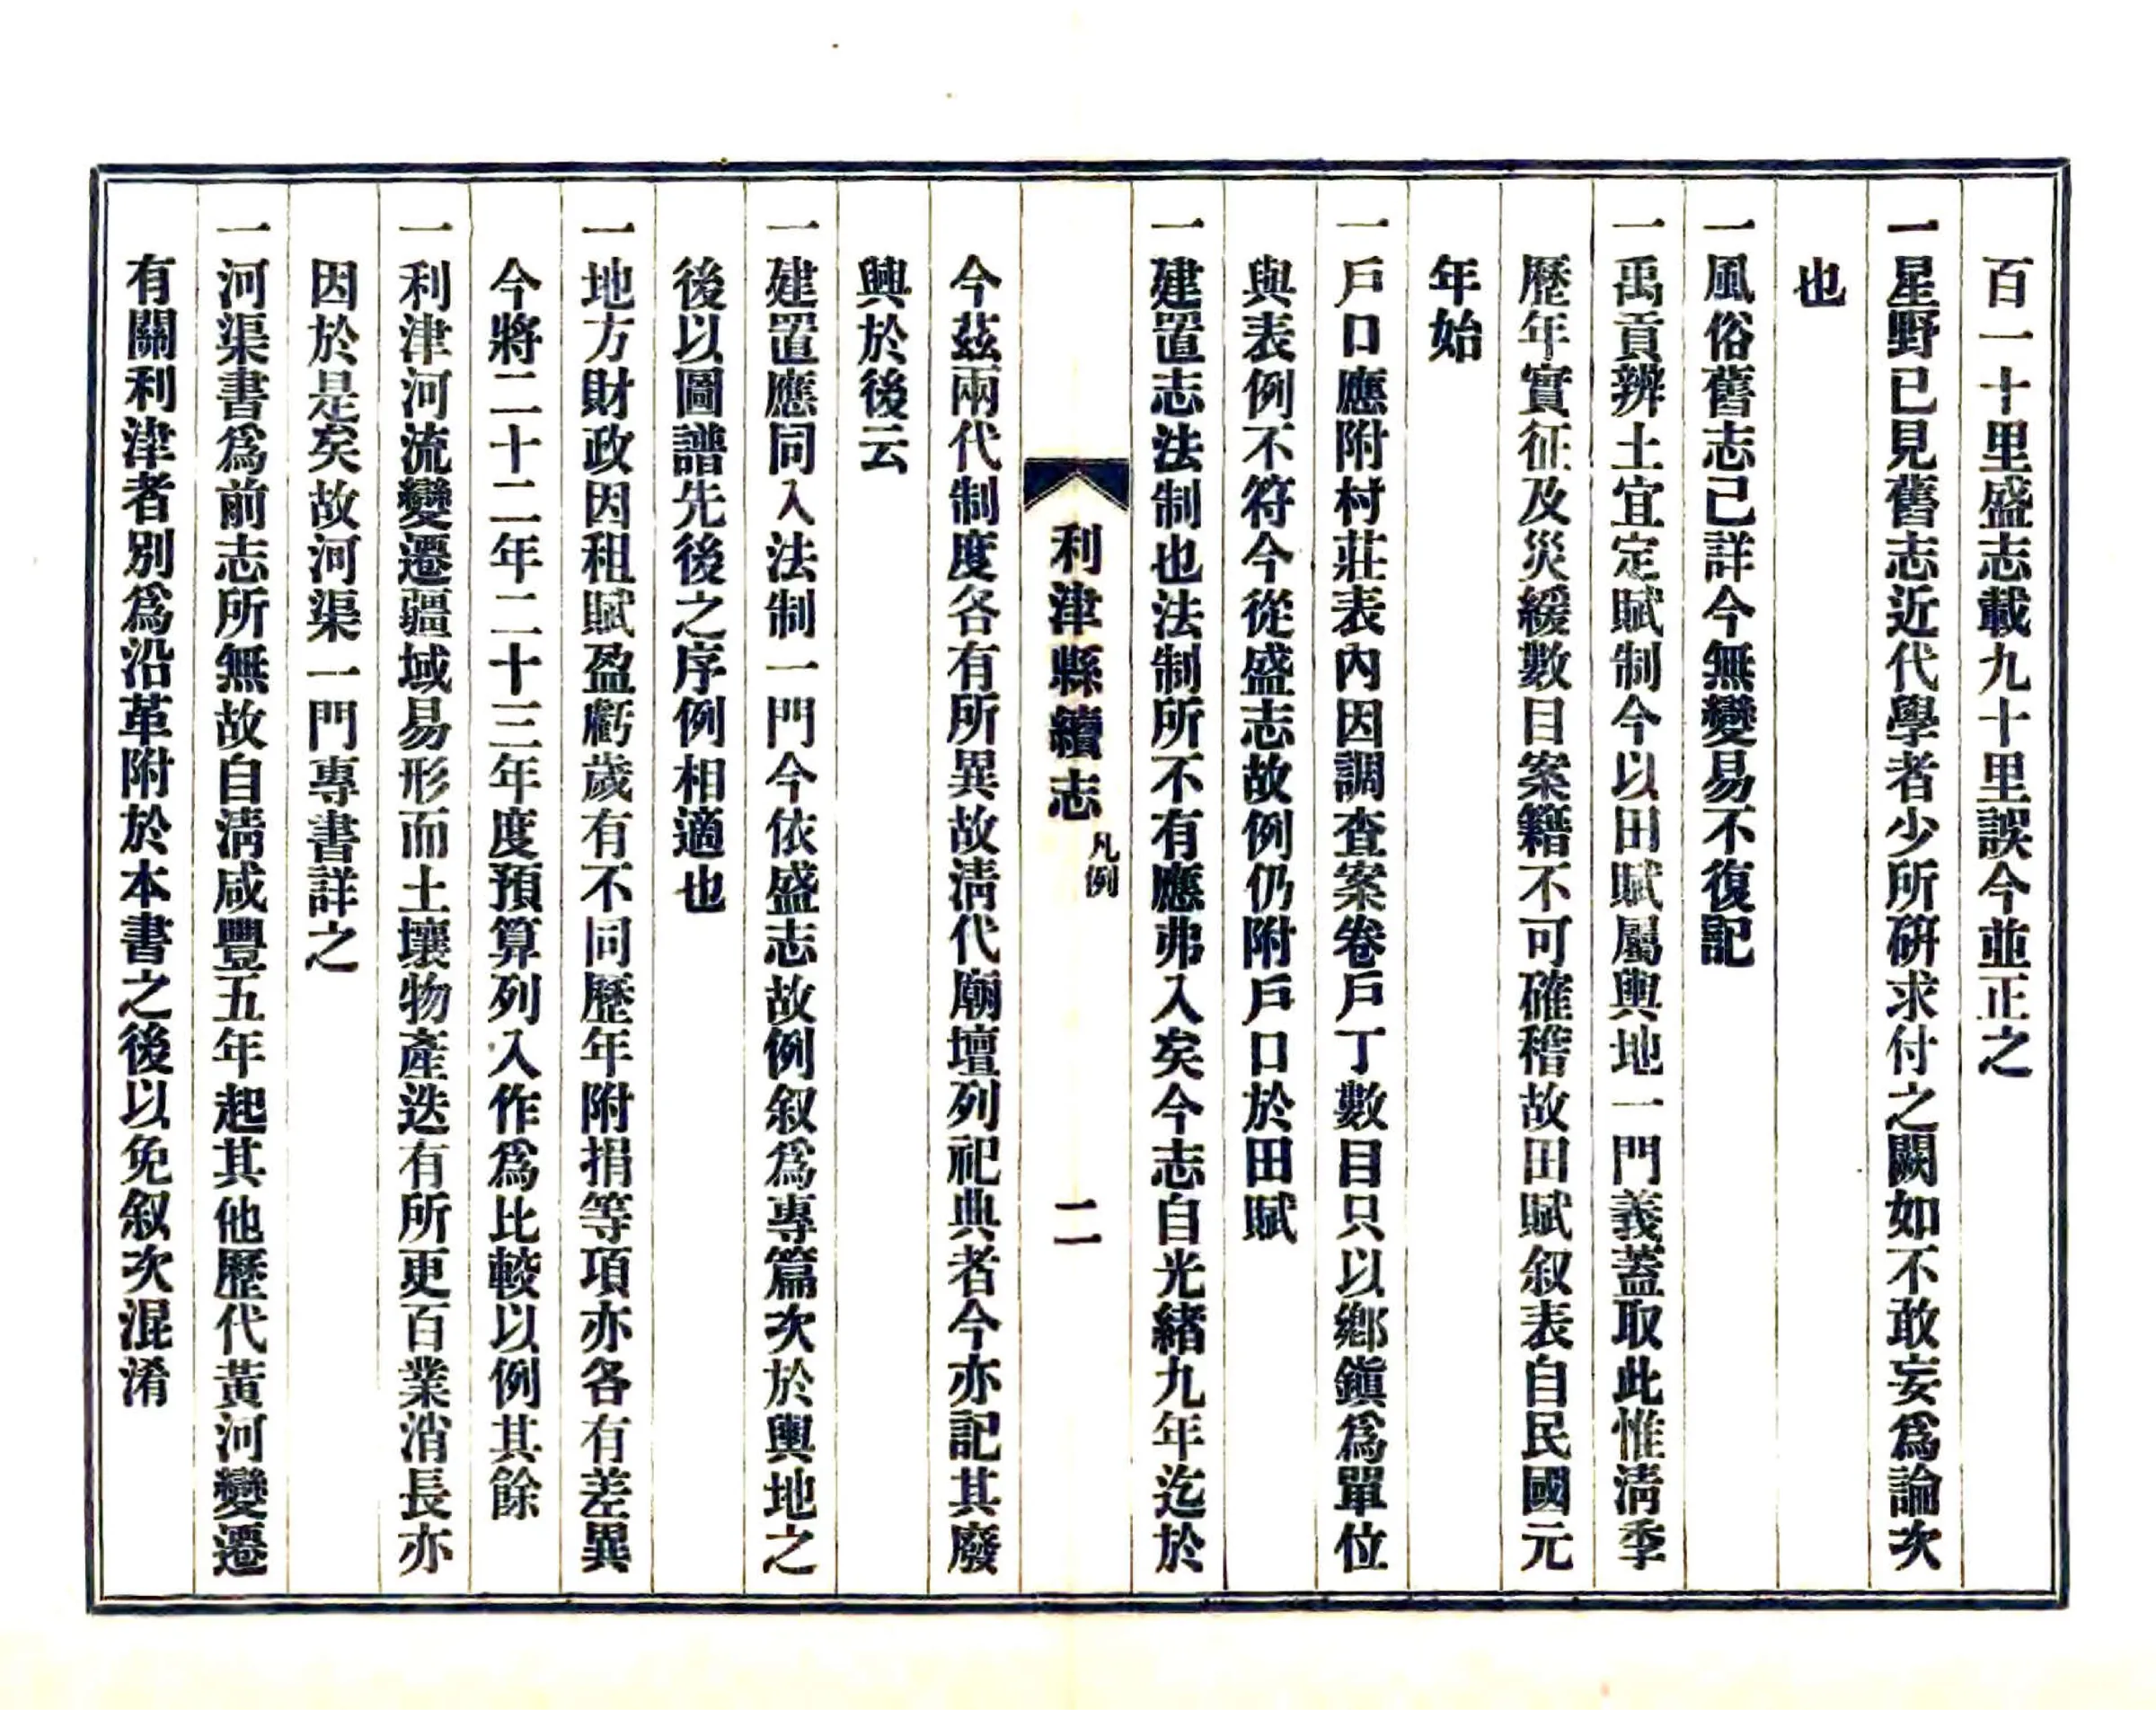 百一十里盛志載九十里誤今並正之
一星野已見舊志近代學者少所研求付之闕如不敢妄爲論次
也
一風俗舊志已詳今無變易不復記
一禹貢辨土宜定賦制今以田賦屬輿地一門義蓋取此惟清季
歷年實征及災緩數目案籍不可確稽故田賦叙表自民國元
年始
一戶口應附村莊表內因調查案卷戶丁數目只以鄉鎭爲單位
與表例不符今從盛志故例仍附戶口於田賦
一建置志法制也法制所不有應弗入矣今志自光緒九年迄於
利津縣續志 凡例 二
今茲兩代制度各有所異故清代廟壇列祀典者今亦記其廢
興於後云
一建置應同入法制一門今依盛志故例叙爲專篇次於輿地之
後以圖譜先後之序例相適也
一地方財政因租賦盈虧歲有不同歷年附捐等項亦各有差異
今將二十二年二十三年度預算列入作爲比較以例其餘
一利津河流變遷疆域易形而土壤物產迭有所更百業消長亦
因於是矣故河渠一門專書詳之
一河渠書爲前志所無故自清咸豐五年起其他歷代黃河變遷
有關利津者別爲沿革附於本書之後以免叙次混淆